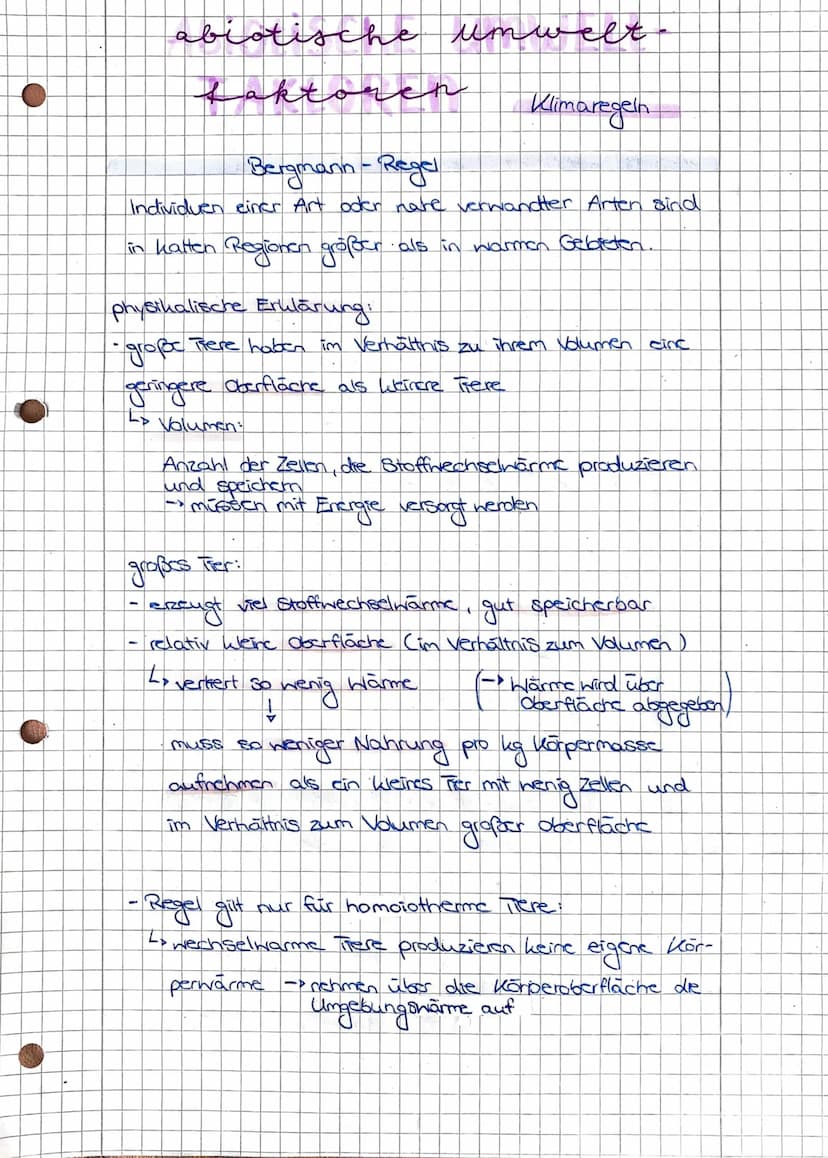 abiotische Umwelt-
faktoren
Klimaregeln
Bergmann-Regel
Individuen einer Art oder nahe verwandter Arten sind
in kalten Regionen größer als in warmen Gebieten.
physikalische Erklärung:
· große Tiere haben im Verhältnis zu ihrem Volumen eine
geringere Oberfläche als kleinere Tiere
↳ Volumen:
Anzahl der Zellen, die Stoffwechselwärme produzieren
und speichern
→ müssen mit Energie versorgt werden
großes Tier:
- erzeugt viel Stoffwechselwärme, gut speicherbar
- relativ kleine Oberfläche (im Verhältnis zum Volumen)
↳ verliert so wenig Wärme (→ Wärme wird über
Oberfläche abgegeben)
↓
muss so weniger Nahrung pro kg Körpermasse
aufnehmen als ein kleines Tier mit wenig Zellen und
im Verhältnis zum Volumen großer Oberfläche
- Regel gilt nur für homoiotherme Tiere:
↳ wechselwarme Tiere produzieren keine eigene Kör-
perwärme → nehmen über die Körperoberfläche die
Umgebungswärme auf